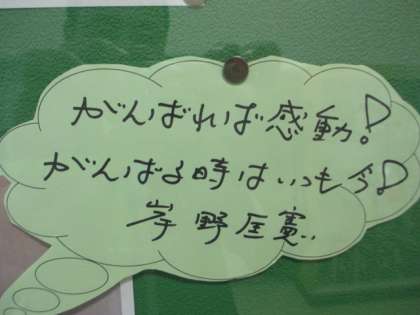 がんばれば感動!
がんばる時はいつも今!
岸野匡寛